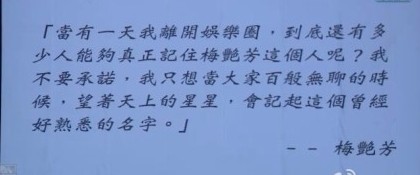 「當有一天我離開娛樂圈，到底還有多
少人能夠真正記住梅艷芳這個人呢？我
不要承諾，我只想當大家百般無聊的時
候，望著天上的星星，會記起這個曾經
好熟悉的名字。」
-- 梅艷芳